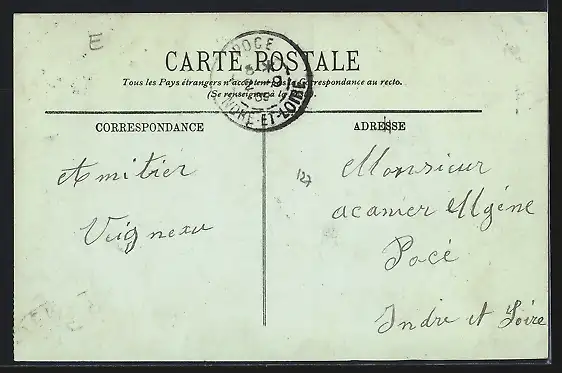 E
CARTE POSTALE
Tous les Pays étrangers n'acceptent pas la correspondance au recto.
(Se renseigner à la
POCÉ
INDRE-ET-LOIRE
CORRESPONDANCE
ADRESSE
Amitier
Vuigneau
127
Monsieur
acanier Ugéne
Pocé
Indre et Loire